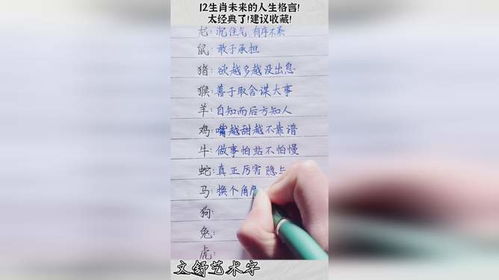 12生肖未来的人生格言!
太经典了!建议收藏!
龙: 沉住气 有序不紊
鼠: 敢于承担
猪: 欲越多越没出息
猴: 善于取舍谋大事
羊: 自知而后方知人
鸡: 嘴越甜越不靠谱
牛: 做事怕站不怕慢
蛇: 真正厉害 隐
马: 换个角
狗:
兔:
虎:
文舒艺术字